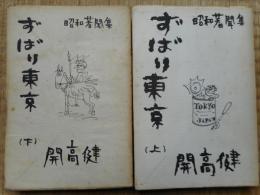 昭和著聞集
ずばり東京
(下)
開高健
昭和著聞集
ずばり東京
TOKYO
(上)
開高健